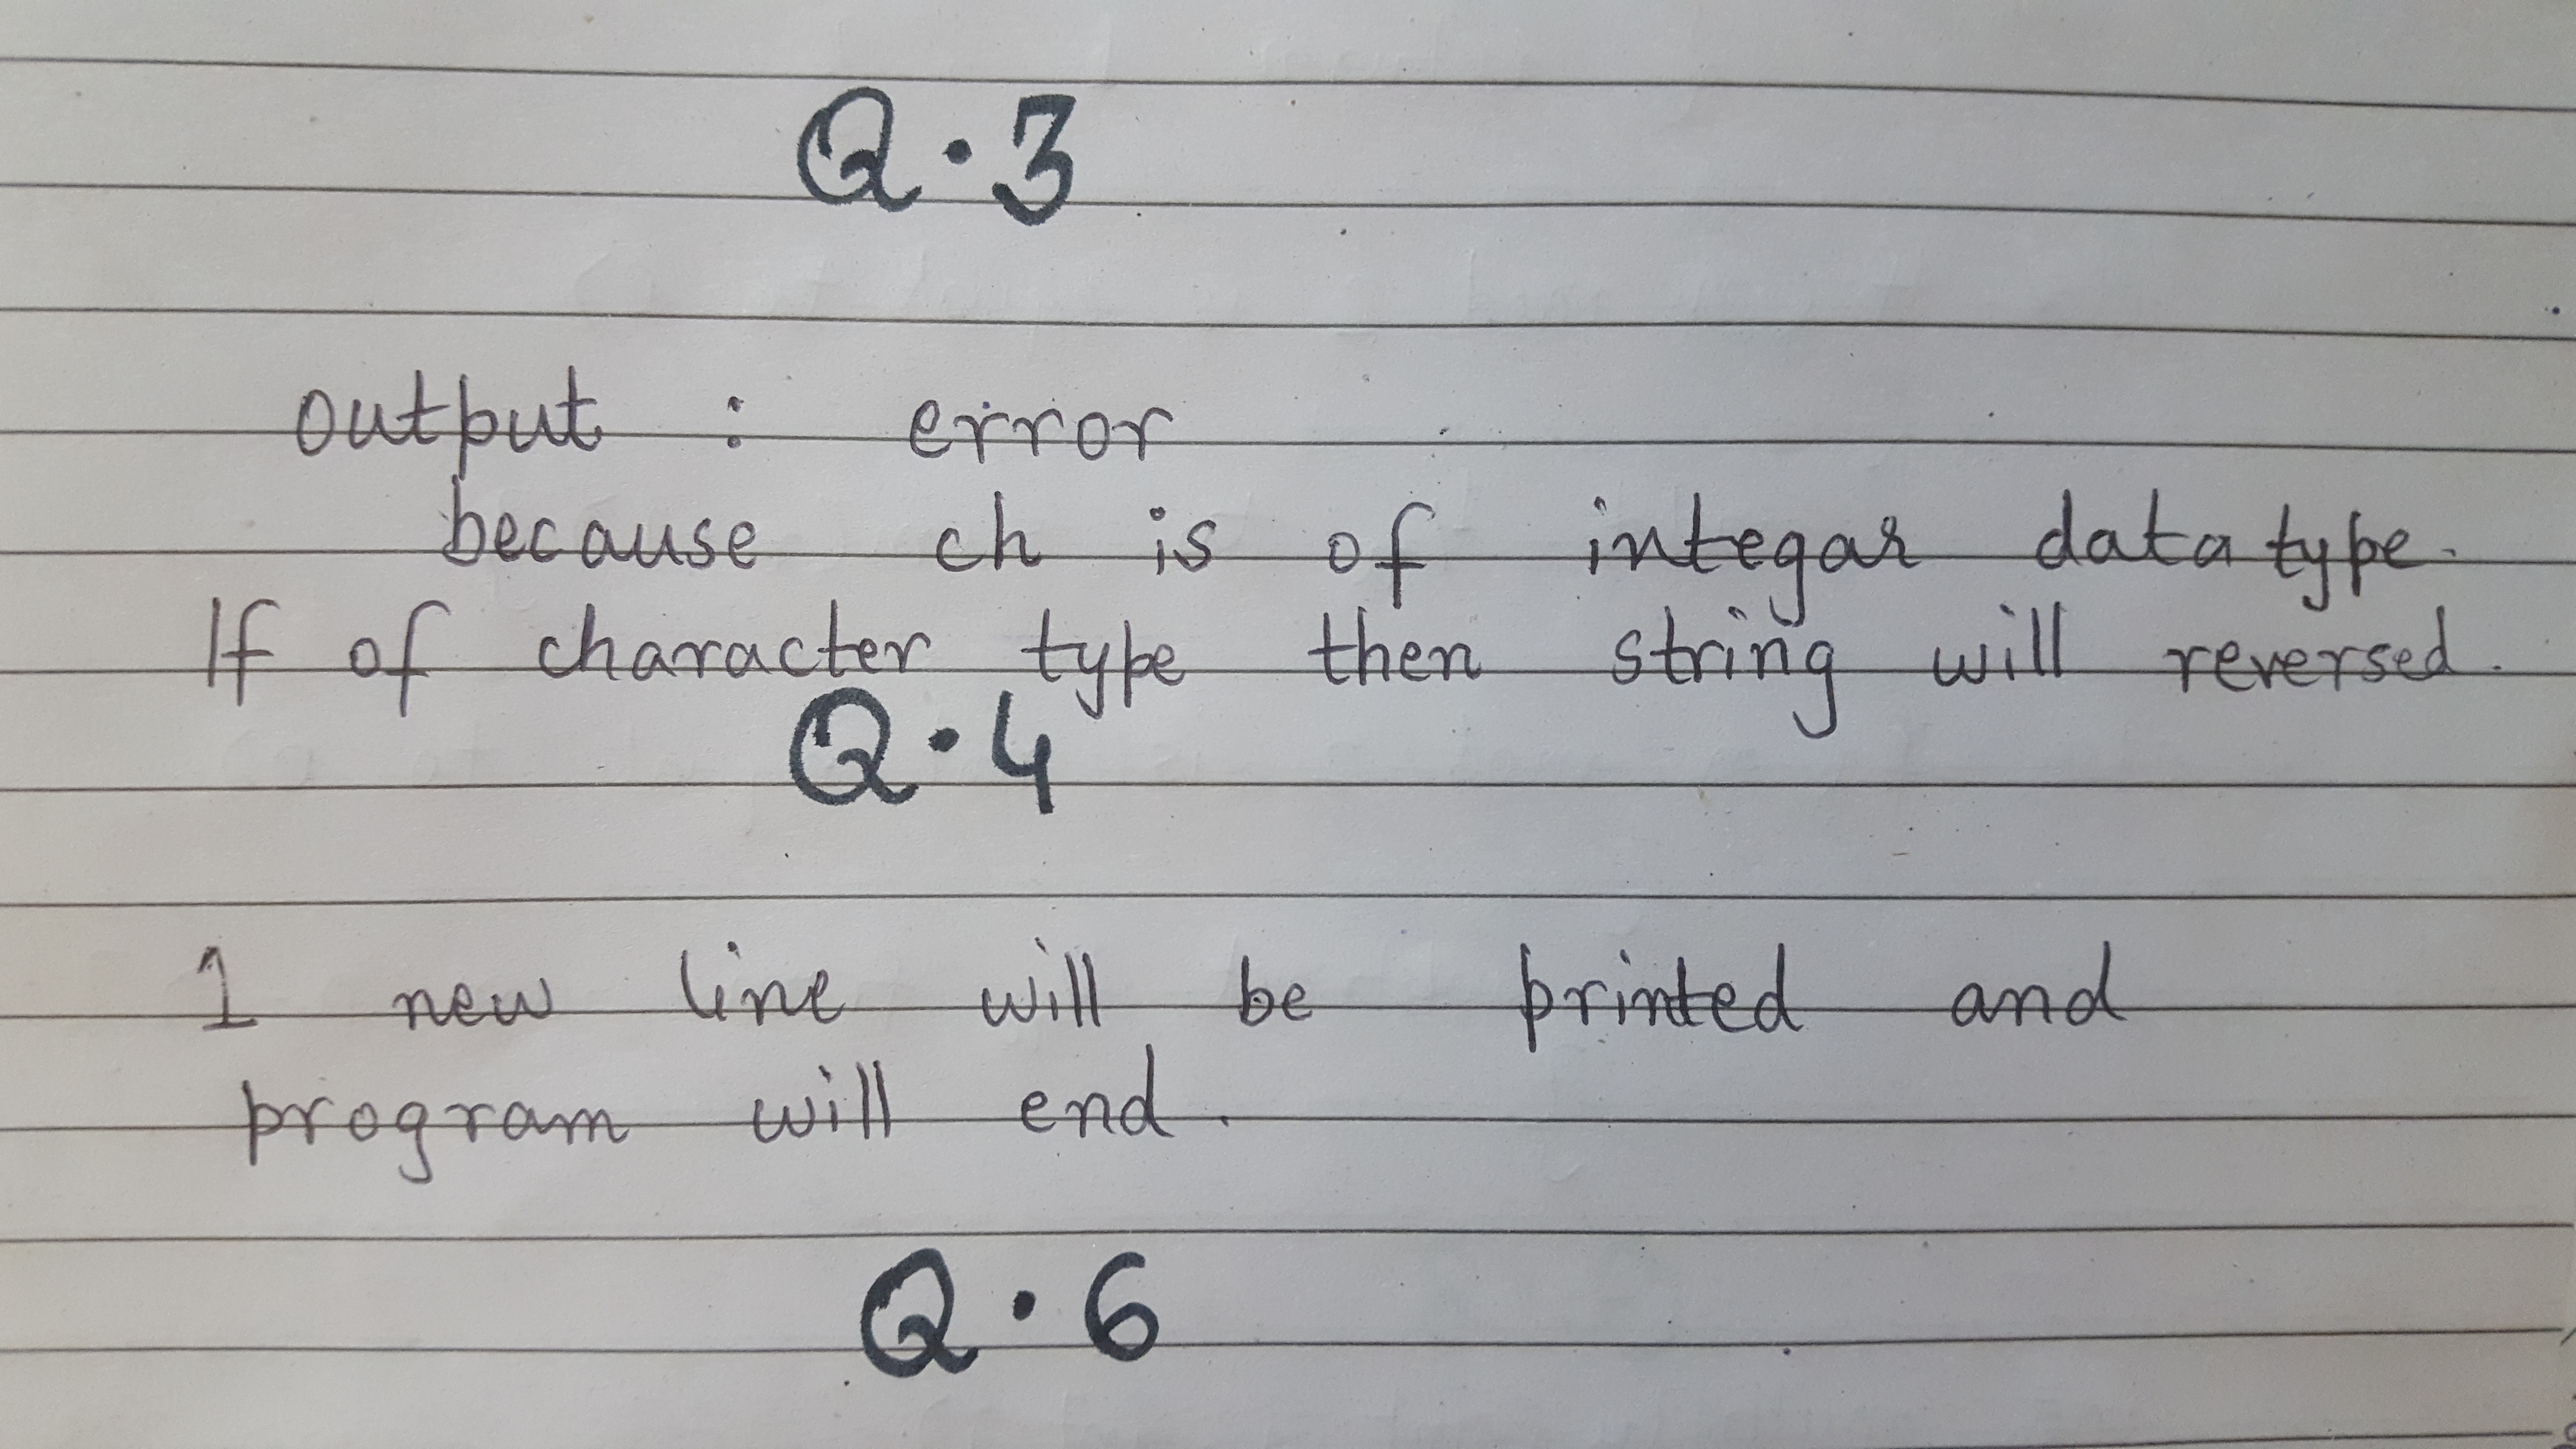 Q.3
output : error
because ch is of integar data type.
If of character type then string will reversed.
Q.4
1 new line will be printed and
program will end.
Q.6